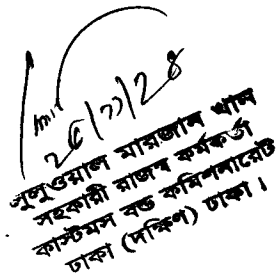 ২৫/১১/২৪
সুলুওয়াল মারজান খান
সহকারী রাজস্ব কর্মকর্তা
কাস্টমস বন্ড কমিশনারেট
ঢাকা (দক্ষিণ) ঢাকা।